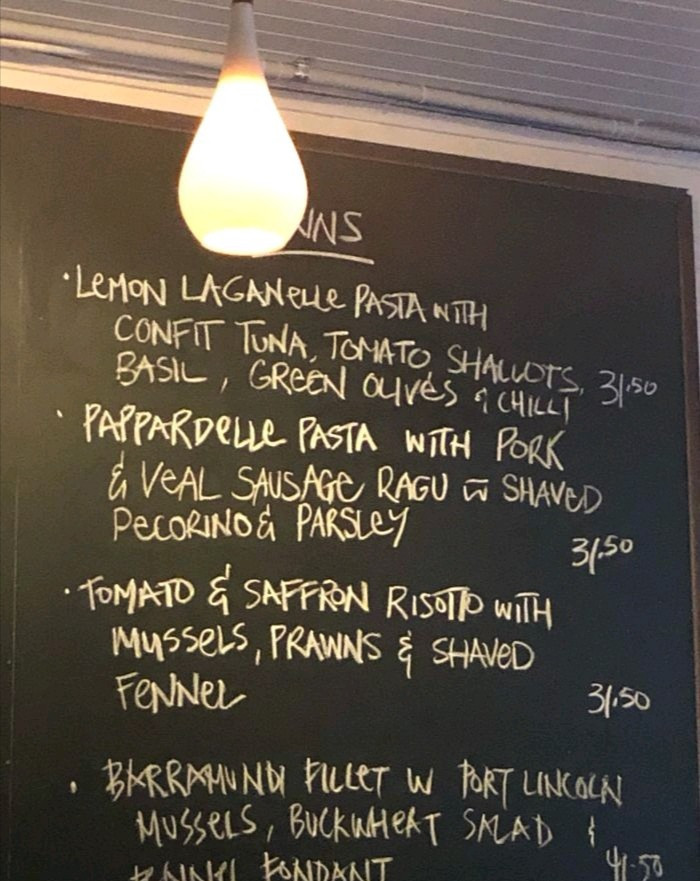 · LEMON LAGANELLE PASTA WITH
CONFIT TUNA, TOMATO SHALLOTS,
BASIL, GREEN OLIVES & CHILLI 31.50
· PAPPARDELLE PASTA WITH PORK
& VEAL SAUSAGE RAGU W SHAVED
PECORINO & PARSLEY
31.50
· TOMATO & SAFFRON RISOTTO WITH
MUSSELS, PRAWNS & SHAVED
FENNEL 31.50
· BARRAMUNDI FILLET W PORT LINCOLN
MUSSELS, BUCKWHEAT SALAD &
FENNEL FONDANT 41.50